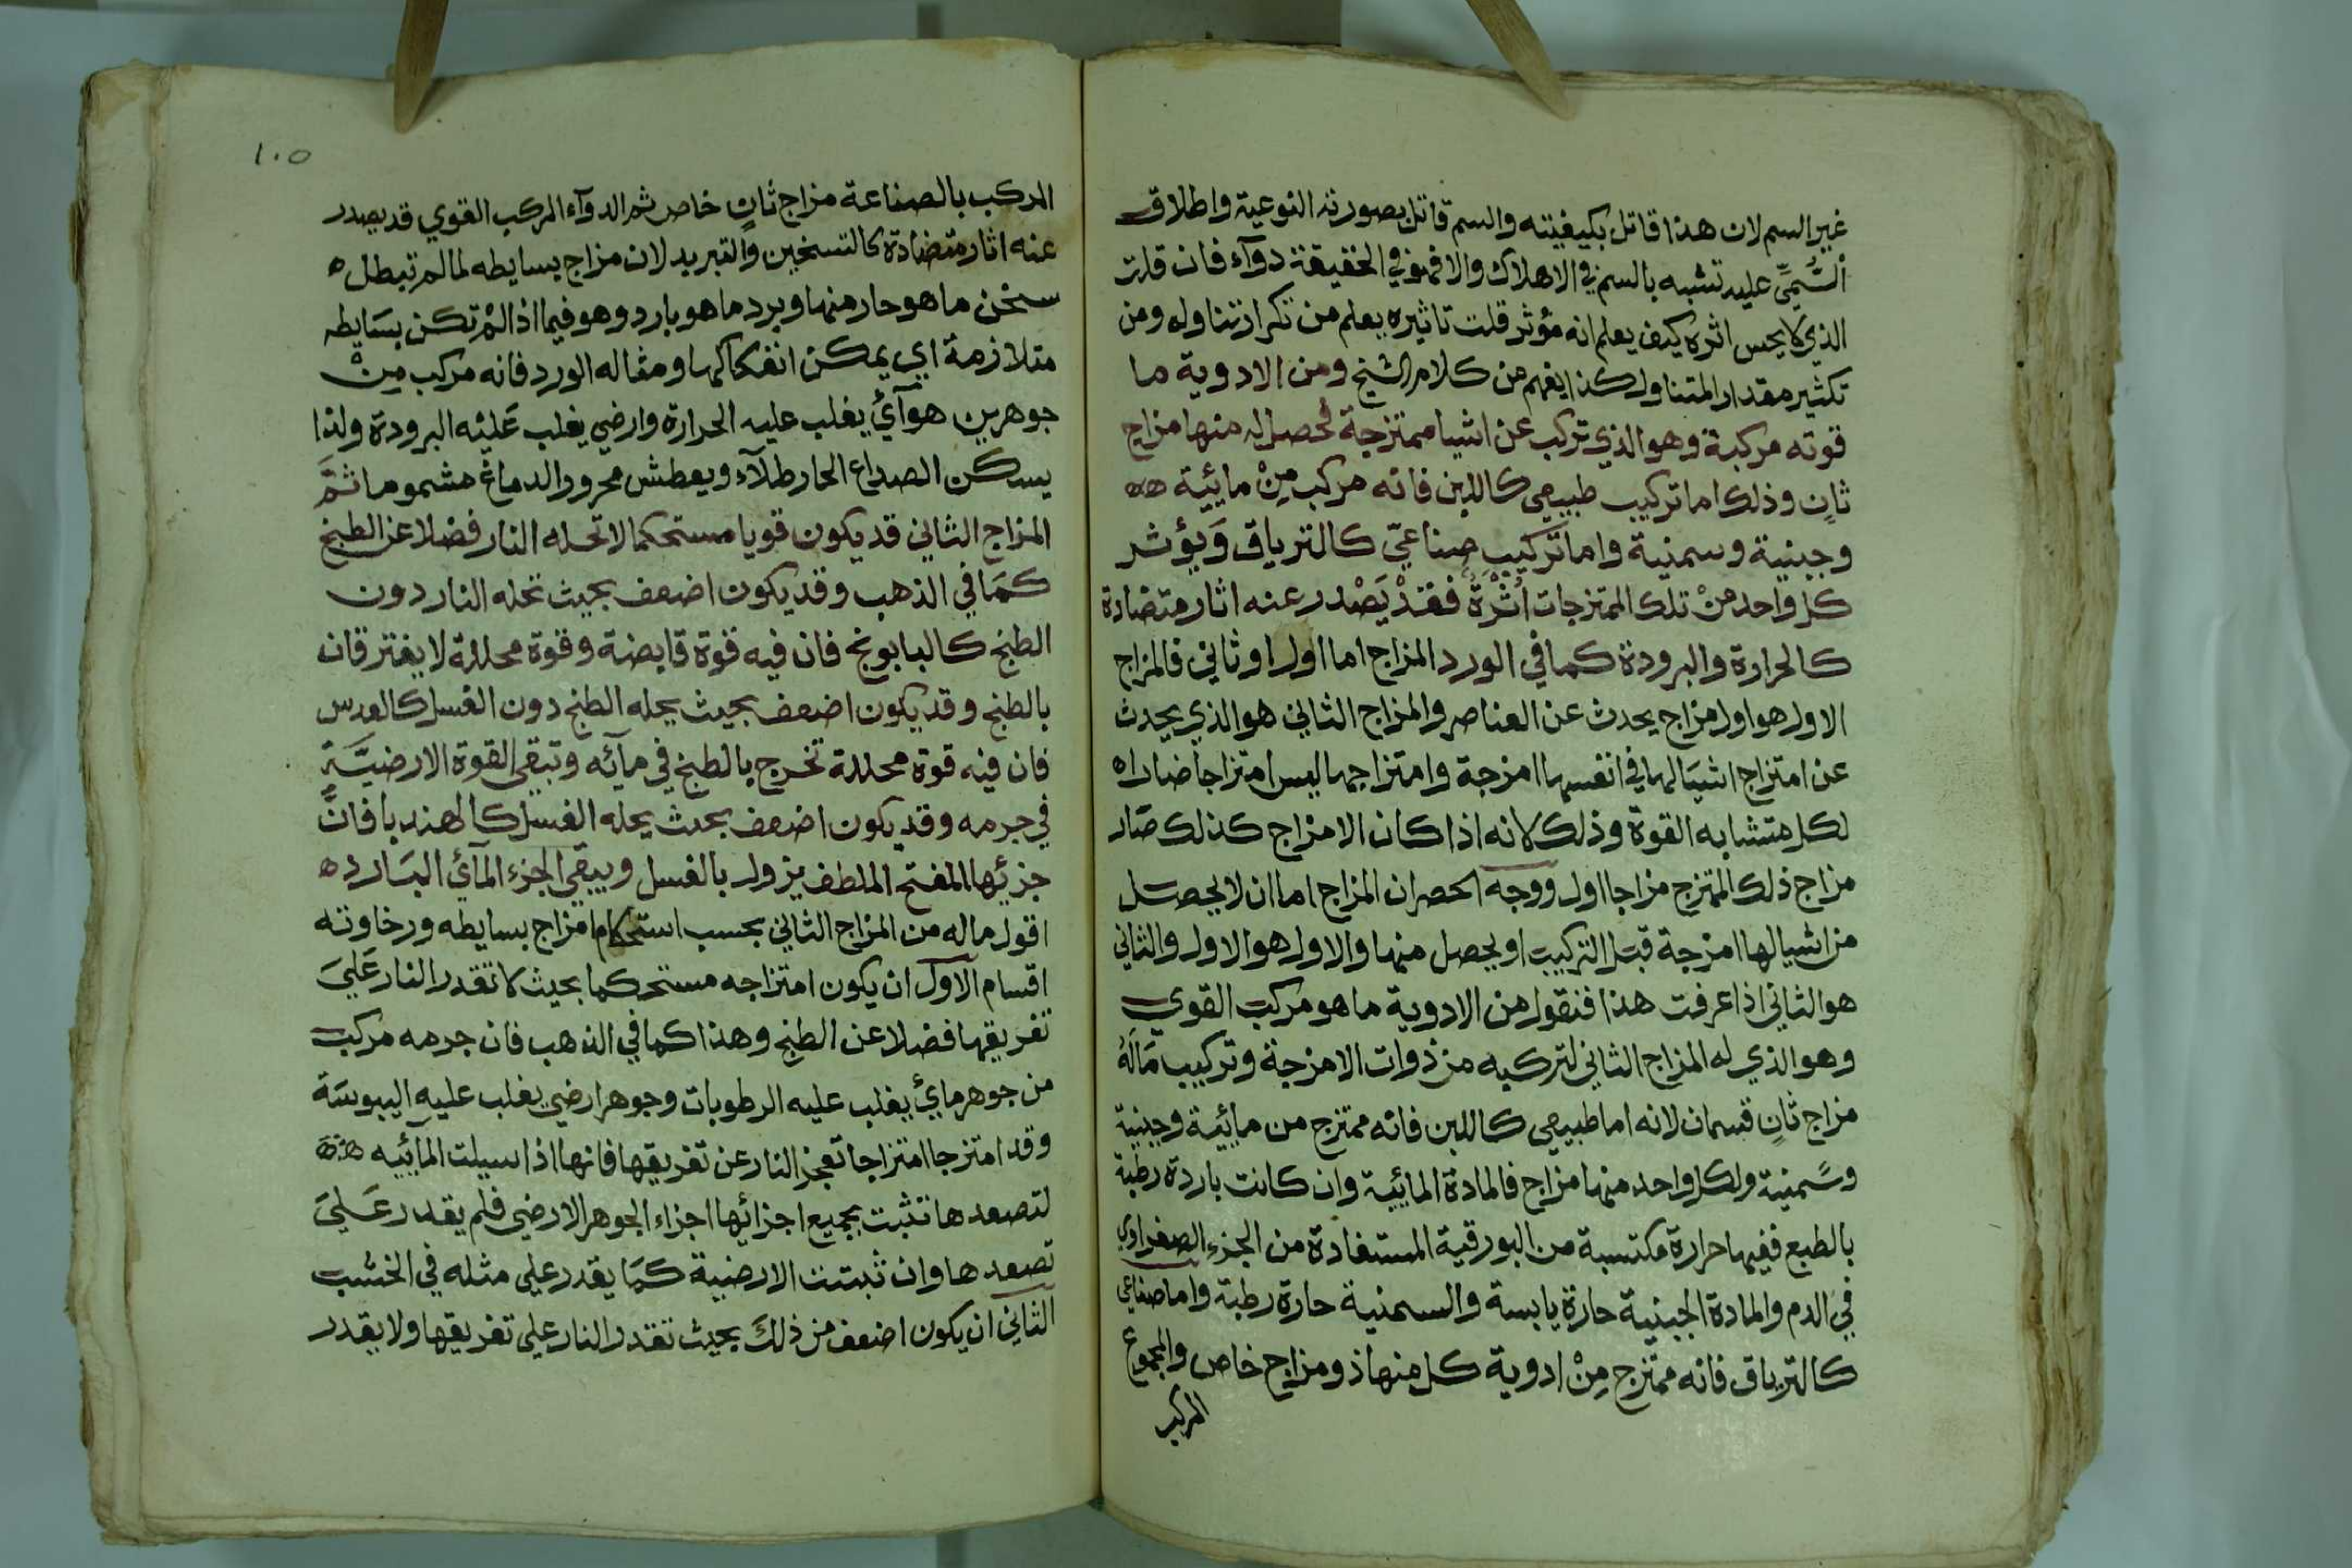 غير السم لان هذا قاتل بكيفيته والسم قاتل بصورته النوعية واطلاق
السُّمِّيِّ عليه تشبه بالسم في الاهلاك والا فهو في الحقيقة دوآء فان قلت
الذي لا يحس اثره كيف يعلم انه مؤثر قلت تاثيره يعلم من تكرار تناوله ومن
تكثير مقدار المتناول كذا يفهم من كلام الشيخ ومن الادوية ما
قوته مركبة وهو الذي تركب عن اشيا ممتزجة لحصل له منها مزاج
ثانٍ وذلك اما تركيب طبيعي كاللبن فانه مركب مِنْ مائية
وجبنية وسمنية واما تركيبٍ صناعيّ كالترياق وَيؤثر
كل واحد منْ تلك الممتزجات اثرهُ فقدْ يَصْدر عنه اثار متضادة
كالحرارة والبرودة كما في الورد المزاج اما اول او ثاني فالمزاج
الاول هو اول مزاج يحدث عن العناصر والمزاج الثاني هو الذي يحدث
عن امتزاج اشيَا لها في انفسها امزجة وامتزاجها ليس امتزاجا ضارا
لكل متشابه القوة وذلك لانه اذا كان الامزاج كذلك صَار
مزاج ذلك الممتزج مزاجا اول ووجه الحصر ان المزاج اما ان لا يحصل
من اشيا لها امزجة قبل التركيب او يحصل منها والاول هو الاول والثاني
هو الثاني اذا عرفت هذا فنقول من الادوية ما هو مركب القوي
وهو الذي له المزاج الثاني لتركبه من ذوات الامزجة وتركيب مَالَهُ
مزاج ثانٍ قسمان لانه اما طبيعي كاللبن فانه ممتزج من مائية وجبنية
وسَمنية ولكل واحد منها مزاج فالمادة المائية وان كانت باردة رطبة
بالطبع ففيها حرارة مكتسبة من البورقية المستفادة من الجزء الصفراوي
في الدم والمادة الجبنية حارة يابسة والسمنية حارة رطبة واما صناعي
كالترياق فانه ممتزج مِنْ ادوية كل منها ذو مزاج خاص والمجموع
المركب
١٠٥
المركب بالصناعة مزاج ثانٍ خاص ثم الدوآء المركب القوي قد يصدر
عنه اثار متضادة كالتسخين والتبريد لان مزاج بسايطه لما لم تبطل
سخن ما هو حار منها وبرد ما هو بارد وهو فيما اذا لمْ تكن بسَايطه
متلازمة اي يمكن انفكاكها ومثاله الورد فانه مركب مِنْ
جوهرين هوآئي يغلب عليه الحرارة وارضي يغلب عَليْه البرودة ولذا
يسكن الصداع الحار طلآء ويعطش محرور الدماغ مشموما ثمَّ
المزاج الثاني قد يكون قويا مستحكما لا تحله النار فضلا عن الطبخ
كمَا في الذهب وقد يكون اضعف بحيث تحله النار دون
الطبخ كالبابونج فان فيه قوة قابضة وقوة محللة لا يفترقان
بالطبخ وقد يكون اضعف بحيث يحله الطبخ دون الغسل كالعدس
فان فيه قوة محللة تخرج بالطبخ في مآئه وتبقي القوة الارضيَّة
في جرمه وقد يكون اضعف بحيث يحله الغسل كالهندبا فانَّ
جزئها المفتح الملطف يزول بالغسل ويبقي الجزء المآئي البَارد
اقول ما له من المزاج الثاني بحسب استحكام امزاج بسايطه ورخاوته
اقسام الاول ان يكون امتزاجه مستحكما بحيث لا تقدر النار عَليَ
تفريقها فضلا عن الطبخ وهذا كما في الذهب فان جرمه مركب
من جوهر مائي يغلب عليه الرطوبات وجوهر ارضي يغلب عليه اليبوسَة
وقد امتزجا امتزاجا تعجز النار عن تفريقها فانها اذا سيلت المآئيه
لتصعدها تثبت بجميع اجزائها اجزاء الجوهر الارضي فلم يقدر عَليَ
تصعدها وان ثبتت الارضية كمَا يقدر علي مثله في الخشب
الثاني ان يكون اضعف من ذلكَ بحيث تقدر النار علي تفريقها ولا يقدر